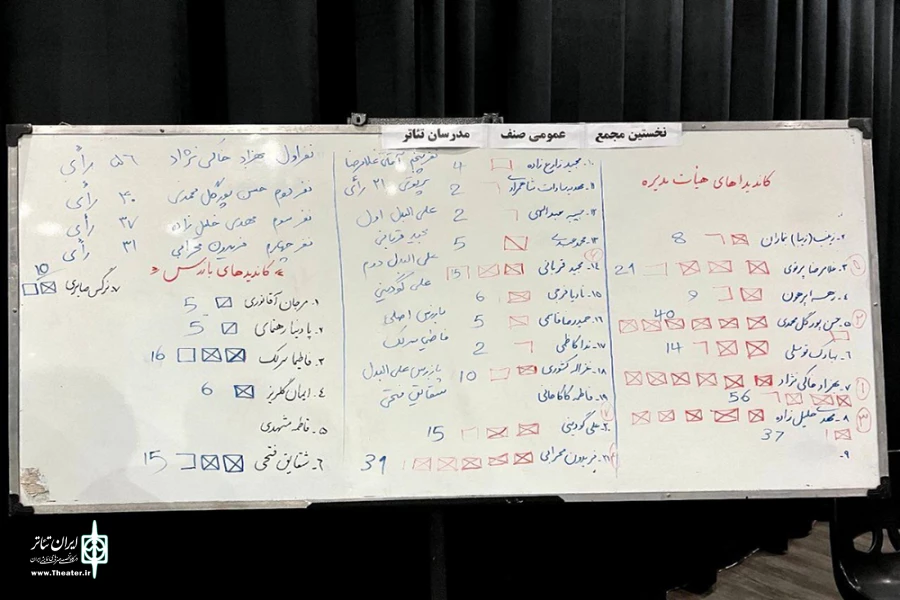 نخستین مجمع عمومی صنف مدرسان تئاتر
کاندیداهای هیأت مدیره
۲- زینب (زیبا) نماران 8
۳- غلامرضا 21
۴- 9
۵- حسن پورگل محمدی 40
۶- بهادرک توسلی 14
۷- بهزاد خاکی نژاد
56
۸- مهدی خلیل زاده
37
۹-
۱۰- مجید زارع زاده 4
2
۱۲- حبیب عبداللهی 2
۱۳- محمد 5
۱۴- مجید قربانی 15
۱۵- نادیا فرجی 6
۱۶- حمیدرضا قاسمی 5
۱۷- ندا کاظمی 2
۱۸- غزاله کشوری 10
۱۹- فاطمه کاکاخانی
۲۰- علی گودینی 15
۲۱- فریدون محرابی 31
نفر پنجم آقای غلامرضا
۲۱ رأی
علی البدل اول
مجید قربانی
علی البدل دوم
علی گودینی
بازرس اصلی
فاطیما سرلک
بازرس علی البدل
شقایق فتحی
نفر اول بهزاد خاکی نژاد ۵۶ رأی
نفر دوم حسن پورگل محمدی ۴۰ رأی
نفر سوم مهدی خلیل زاده ۳۷ رأی
نفر چهارم فریدون محرابی ۳۱ رأی
» کاندیدهای بازرس «
۱- مرجان آقانوری 5
۲- پادینا رهنمای 5
۳- فاطیما سرلک 16
۴- ایمان گلریز 6
۵- فاطمه مشهدی
۶- شقایق فتحی 15
۷- نرگس صابری 10
ایران تئاتر
www.Theater.ir